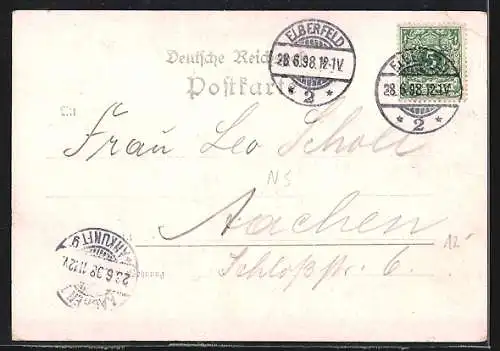 Deutsche Reich
Postkarte
ELBERFELD
28.6.98.12-1V.
* 2 *
ELBERFELD
28.6.98.12-1V.
* 2 *
Frau Leo Scholl
NS
Aachen
12
Schloßstr. 6.
ANKUNFT 9